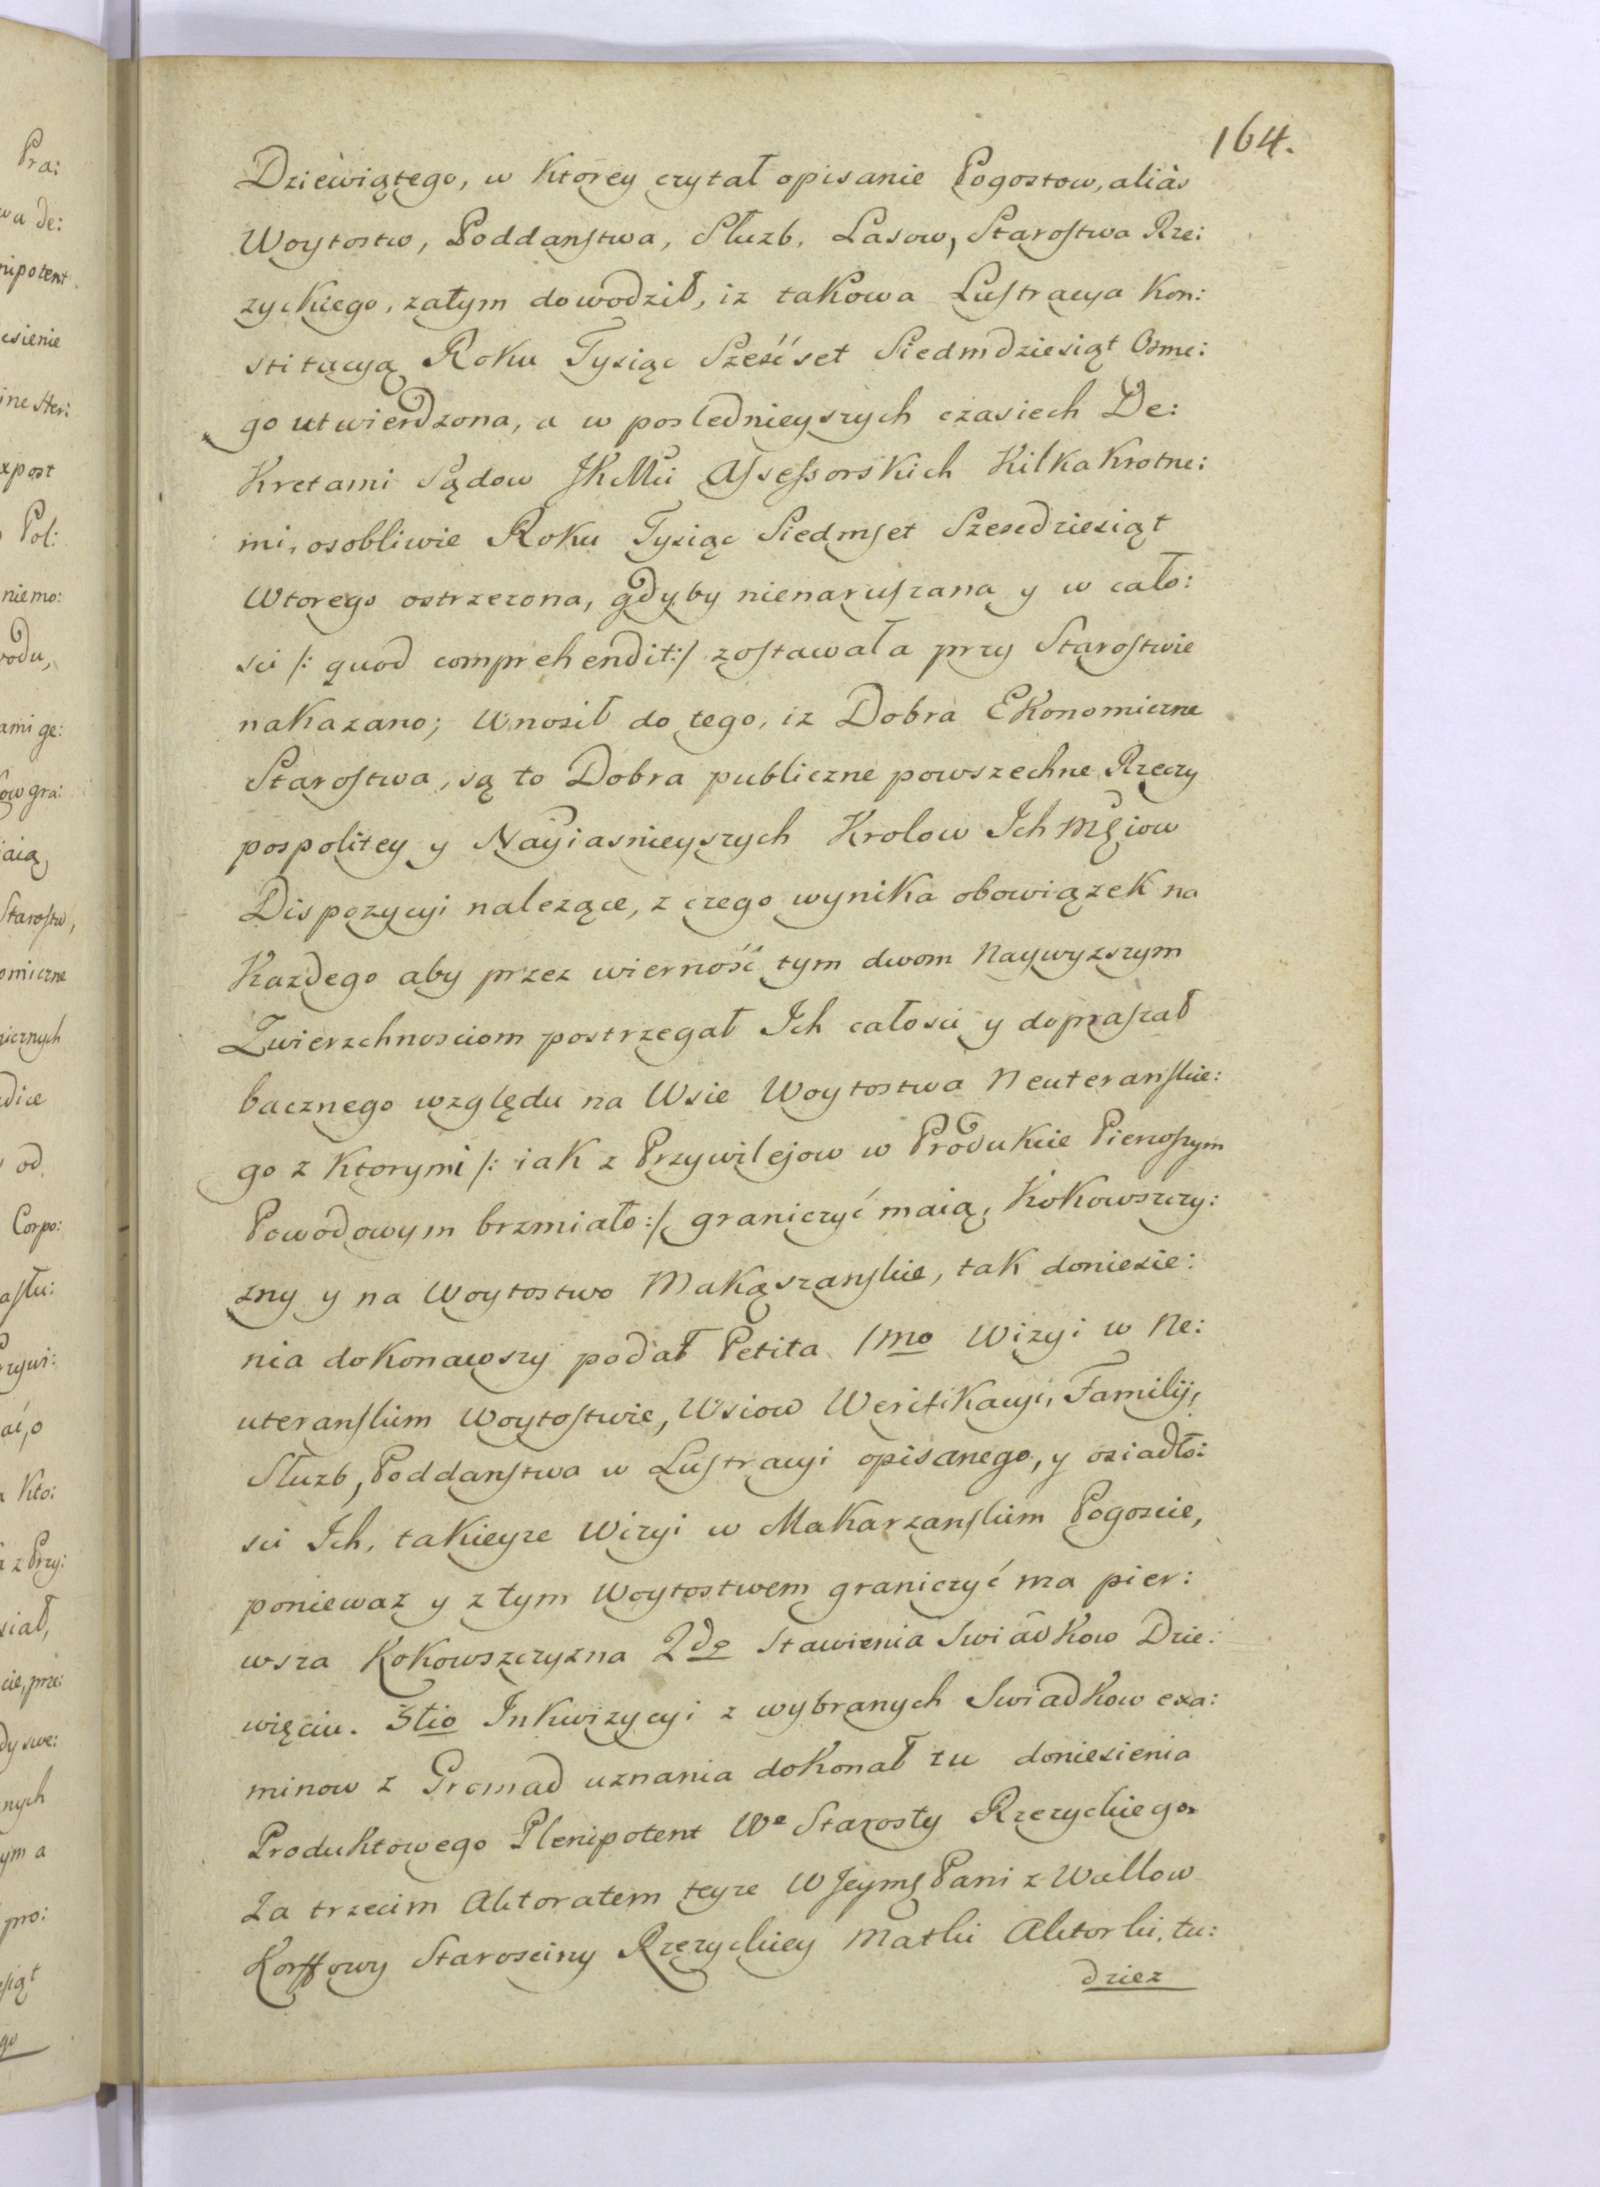 164.
Dziewiątego, w Ktorey czytał opisanie Pogostow, aliàs
Woytostw, Poddanstwa, Służb, Lasow, Starostwa Rze:
zyckiego, zatym dowodził, iz takowa Lustracya Kon:
stitucyą Roku Tysiąc Sześćset Siedmdziesiąt Osme:
go utwierdzona, a w poslednieyszych czasiech De:
Kretami Sądow JKMci Assessorskich Kilkakrotne:
mi, osobliwie Roku Tysiąc Siedmset Szescdziesiąt
Wtorego ostrzezona, gdyby nienaruszana y w cało:
sci /: quod comprehendit :/ zostawała przy Starostwie
nakazano; Wnosił do tego, iz Dobra Ekonomiczne
Starostwa, są to Dobra publiczne powszechne Rzeczy
pospolitey y Nayiasnieyszych Krolow Ich Mściow
Dispozycyi nalezące, z czego wynika obowiązek na
Kazdego aby przez wierność tym dwom Naywyzszym
Zwierzchnosciom postrzegał Ich całosci y dopraszał
bacznego względu na Wsie Woytostwa Neuteranskie:
go z Ktorymi /: iak z Przywilejow w Produkcie Pierwszym
Powodowym brzmiało :/ graniczyć maią, Kokowszczy:
zny y na Woytostwo Makąszanskie, tak doniesie:
nia dokonawszy podał Petita 1mo Wizyi w Ne:
uteranskim Woytostwie, Wsiow Werifikacyi, Familij,
Służb, Poddanstwa w Lustracyi opisanego, y osiadło:
sci Ich, takieyze Wizyi w Makarzanskim Pogoscie,
poniewaz y z tym Woytostwem graniczyć ma pier:
wsza Kokowszczyzna 2do Stawienia Swiadkow Dzie:
więciu. 3tio Inkwizycyi z wybranych Swiadkow exa:
minow z Gromad uznania dokonał tu doniesienia
Produktowego Plenipotent We Starosty Rzezyckiego.
Za trzecim Aktoratem teyze WJeymś Pani z Wallow
Korffowy Starosciny Rzezyckiey Matki Aktorki, tu:
dziez
Pra:
wa de:
nipotent
esienie
xpost
Pol:
niemo:
wodu,
ami ge:
ow gra:
aią,
Starostw,
omiczne
icznych
dice
od
Corpo:
rzywi:
Kto:
z Przy:
siał,
cie, prze:
dy swe:
nych
ym a
pro:
siąt
go